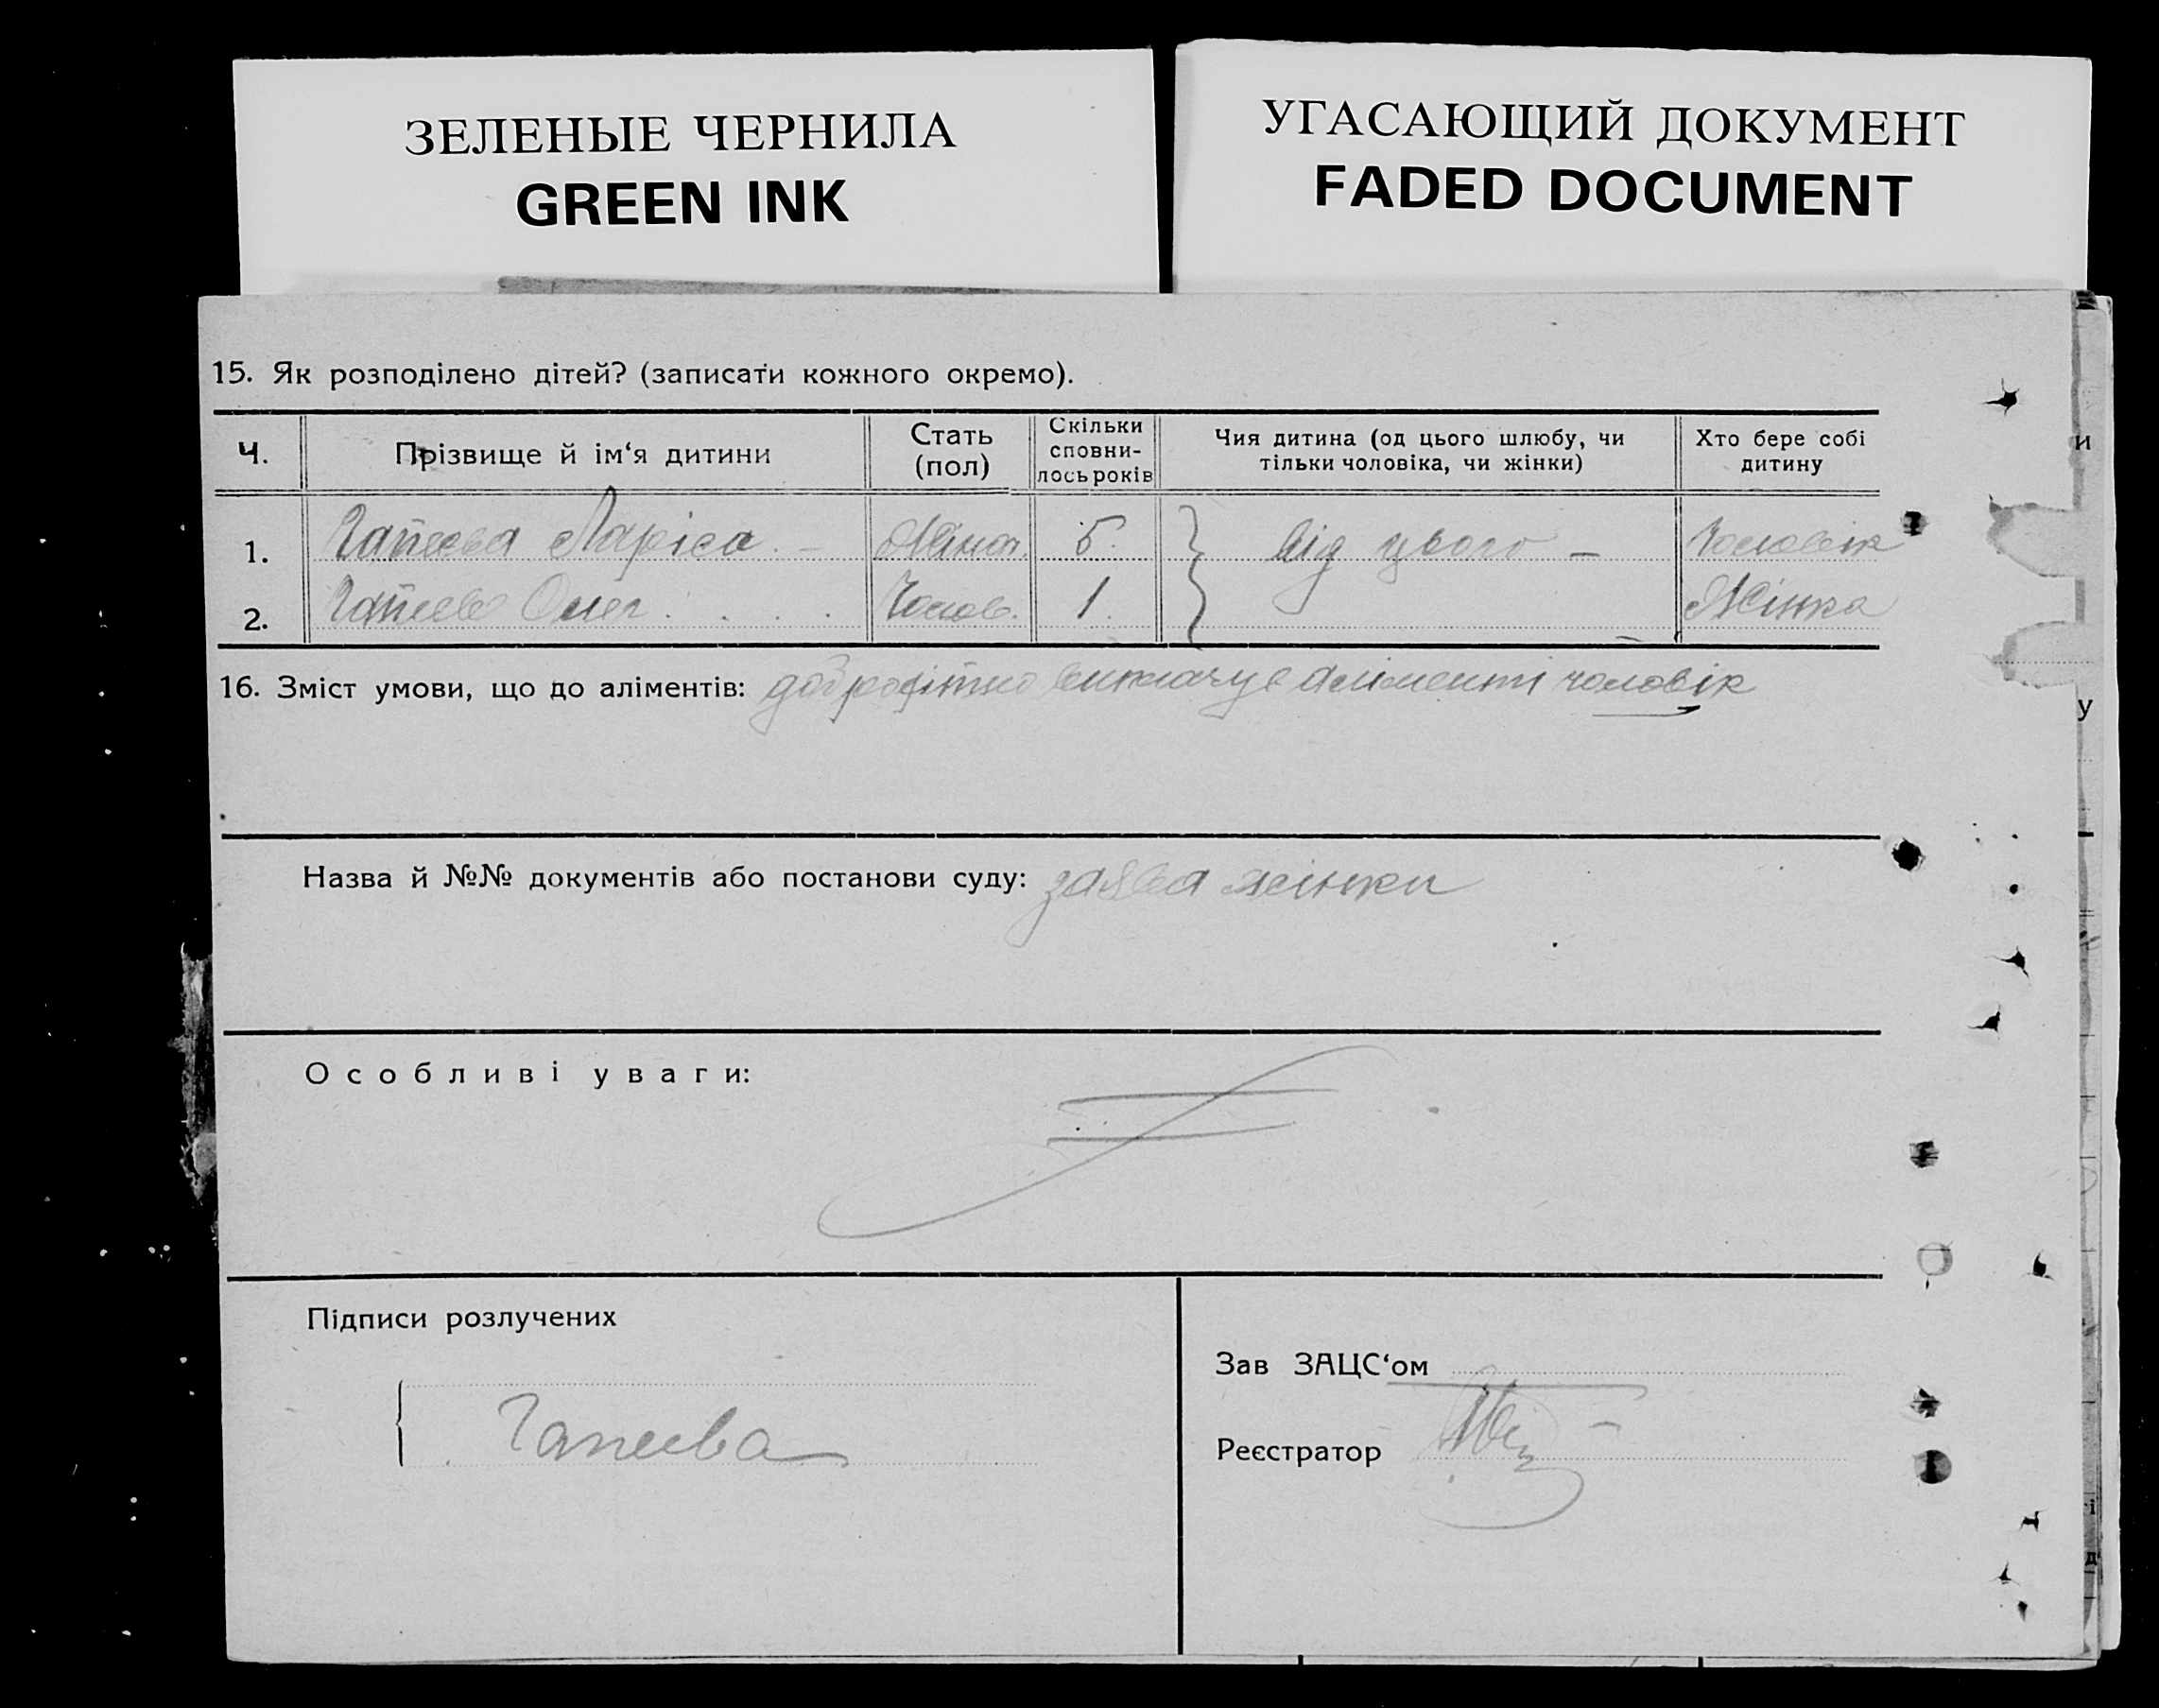 ЗЕЛЕНЫЕ ЧЕРНИЛА
GREEN INK
УГАСАЮЩИЙ ДОКУМЕНТ
FADED DOCUMENT
15. Як розподілено дітей? (записати кожного окремо).
Ч. Прізвище й ім‘я дитини Стать (пол) Скільки сповни-лось років Чия дитина (од цього шлюбу, чи тільки чоловіка, чи жінки) Хто бере собі дитину
1. Гапеєва Ларіса. – Жіноч. 5. від цього – Чоловік
2. Гапеєв Олег. Чолов. 1. Жінка
16. Зміст умови, що до аліментів: виплачує аліменти чоловік
Назва й №№ документів або постанови суду: заява жінки
Особливі уваги:
Підписи розлучених
Гапеева
Зав ЗАЦС‘ом
Реєстратор